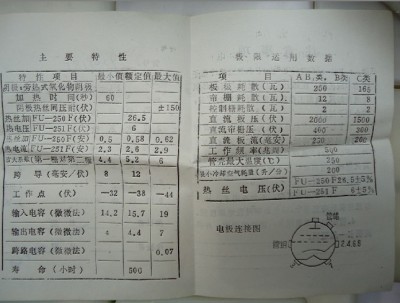 主要特性
特性项目 最小值 额定值 最大值
阴极:旁热式氧化物阴极
加热时间(秒) 60
阴极热丝间压(伏) ±150
热丝加FU—250F(伏) 26.5
热电压FU—251F(伏) 6
热丝加FU—250F(安) 0.5 0.58 0.62
热电流FU—251F(安) 2.3 2.6 2.9
4.4 5.2 6
跨导(毫安/伏) 8 12
工作点(伏) —32 —38 —44
输入电容(微微法) 14.2 15.7 19
输出电容(微微法) 4 4.4 7
跨路电容(微微法) 0.07
寿命(小时) 500
极限运用数据
项目 AB类, B类 C类
板极耗散(瓦) 250 165
帘栅耗散(瓦) 12 8
控制栅耗散(瓦) 2 2
直流板压(伏) 2000 1500
直流帘栅压(伏) 400 300
直流板流(毫安) 250 250
工作频率(兆周) 500
管壳最大温度(℃) 250
最小冷却空气耗量(升/分) 200
热丝电压(伏) FU—250F 26.5±5%
FU—251F 6±5%
电极连接图
2.4.6.8